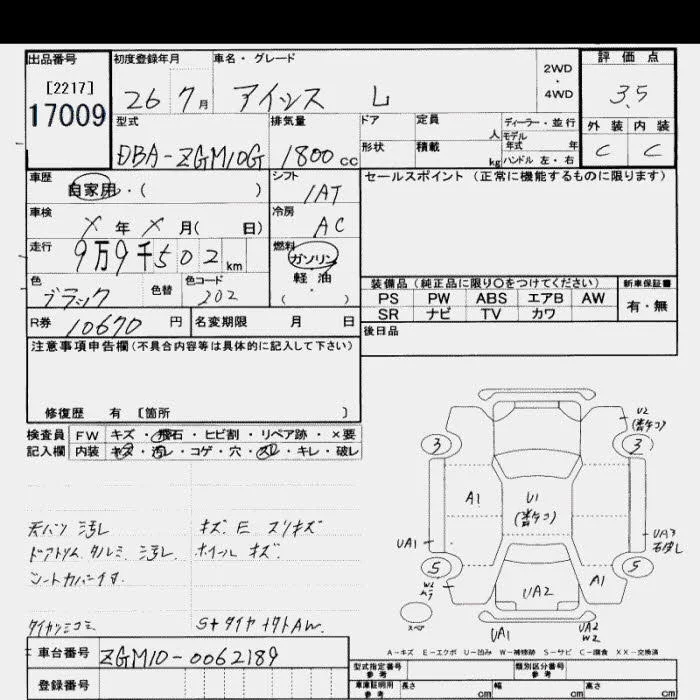 出品番号 初度登録年月 車名・グレード 2WD・4WD 評価点
[2217]
17009 26 7月 アイシス L 3.5
外装 内装
C C
型式 排気量 ドア 定員 人 ディーラー・並行
DBA-ZGM10G 1800cc 形状 積載 kg モデル年式 年
ハンドル 左・右
車歴 シフト セールスポイント(正常に機能するものに限ります)
自家用・( ) IAT
車検 冷房
X年 X月( 日) AC
走行 燃料
9万9千502km ガソリン
軽油
( ・ )
色 色替 色コード
ブラック 202
装備品(純正品に限り○をつけてください) 新車保証書
PS PW ABS エアB AW 有・無
SR ナビ TV カワ
R券 10670円 名変期限 月 日 後日品
注意事項申告欄(不具合内容等は具体的に記入して下さい)
修復歴 有 [箇所 ]
検査員 FW キズ・飛石・ヒビ割・リペア跡・×要
記入欄 内装 キズ・汚レ・コゲ・穴・スレ・キレ・破レ
U2
3 3
A1 U1
UA1 UA3
5 5
W2 A1
UA2
スペア
UA1 UA2
W2
天バリ 汚レ キズ E スリキズ
ドアトリム タルミ 汚レ ホイール キズ
シートカバー
S+タイヤ ナットAW
A-キズ E-エクボ U-凹み W-補修跡 S-サビ C-腐食 XX-交換済
車台番号 ZGM10-0062189
登録番号
型式指定番号 参考 類別区分番号 参考
車庫証明用 参考 長さ cm 幅 cm 高さ cm